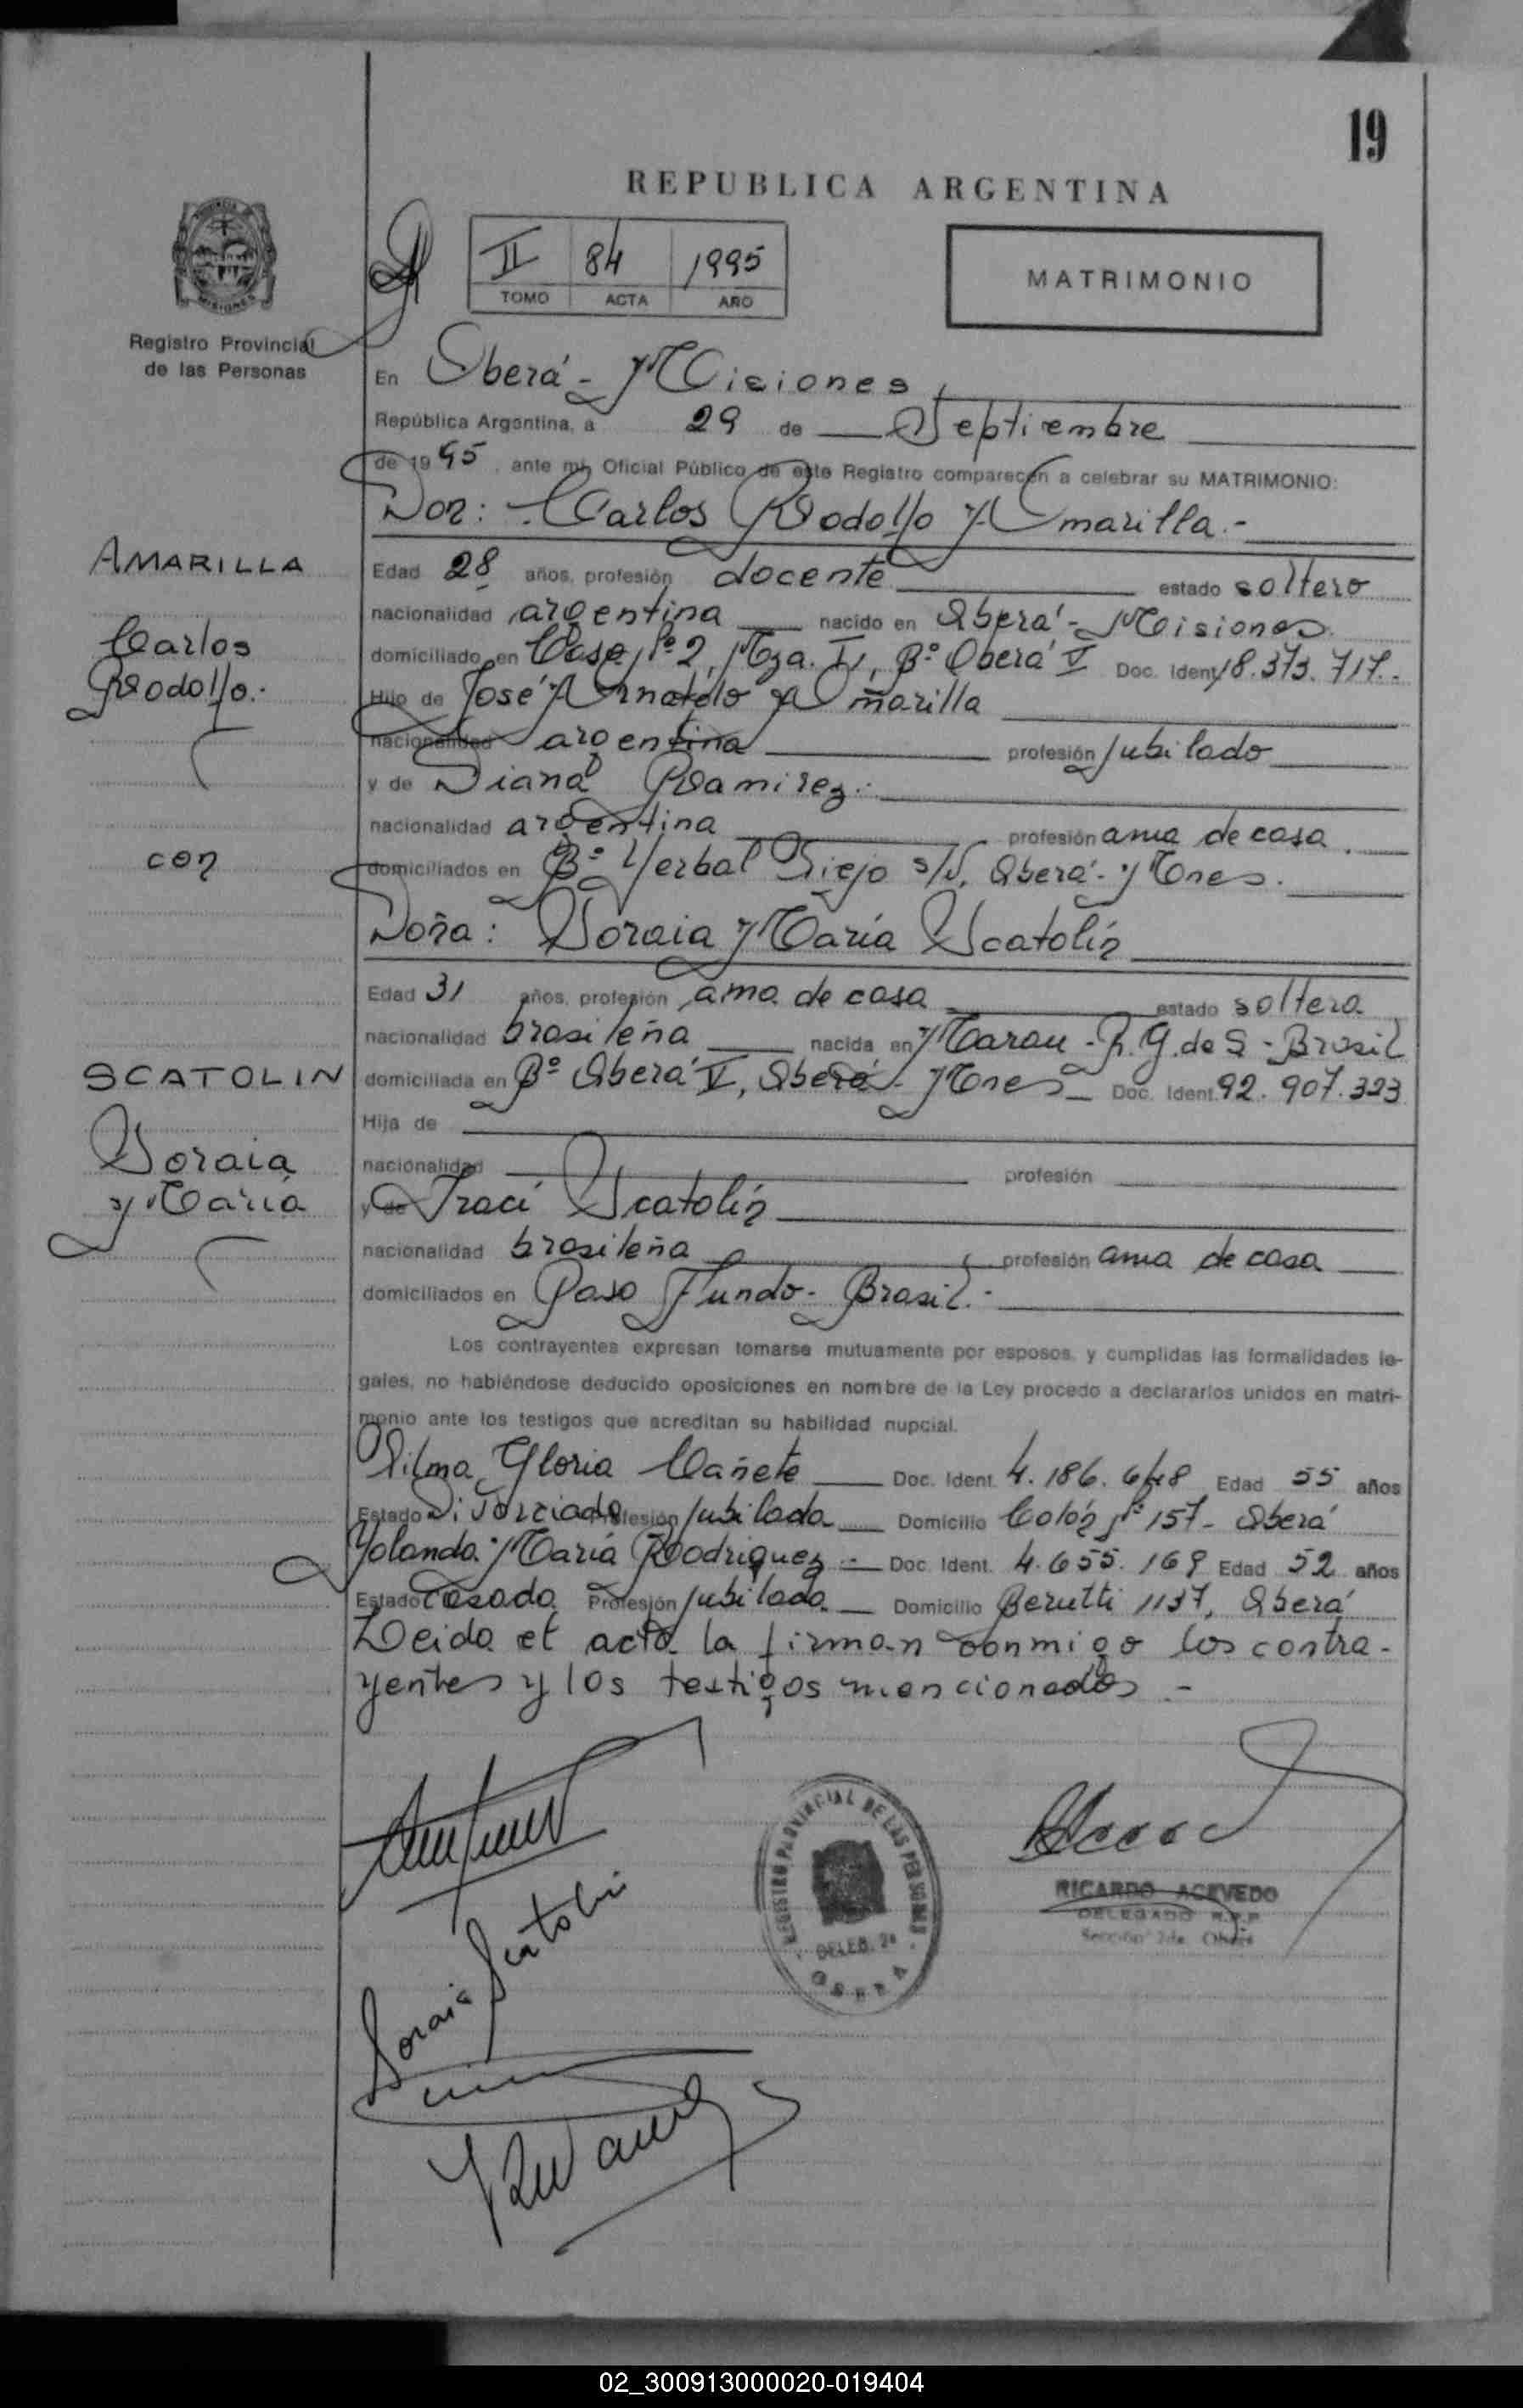 19
REPUBLICA ARGENTINA
II 84 1995
TOMO ACTA AÑO
MATRIMONIO
Registro Provincial
de las Personas
En Oberá - Misiones
República Argentina, a 29 de Septiembre
de 1995, ante mí, Oficial Público de este Registro comparecen a celebrar su MATRIMONIO:
Don: Carlos Rodolfo Amarilla.-
AMARILLA
Carlos
Rodolfo.-
Edad 28 años, profesión docente estado soltero
nacionalidad argentina nacido en Oberá - Misiones.
domiciliado en Casa Nº 2, Mza. I, Bº Oberá V Doc. Ident. 18.373.717.-
Hijo de José Amarilla
nacionalidad argentina profesión jubilado
y de Diana Ramirez.-
nacionalidad argentina profesión ama de casa.
con
domiciliados en Bº Yerbal Viejo s/N, Oberá - Mnes.
Doña: Soraia María Scatolín
Edad 31 años, profesión ama de casa estado soltera
nacionalidad brasileña nacida en Marau - R.G. de S - Brasil
SCATOLIN
Soraia
María
domiciliada en Bº Oberá V, Oberá - Mnes Doc. Ident. 92.907.323
Hija de
nacionalidad profesión
y de Iraci Scatolín
nacionalidad brasileña profesión ama de casa
domiciliados en Paso Fundo - Brasil.-
Los contrayentes expresan tomarse mutuamente por esposos, y cumplidas las formalidades le-
gales, no habiéndose deducido oposiciones en nombre de la Ley procedo a declararlos unidos en matri-
monio ante los testigos que acreditan su habilidad nupcial.
Vilma Gloria Cañete Doc. Ident. 4.186.648 Edad 55 años
Estado Divorciada Profesión jubilada Domicilio Colón Nº 157 - Oberá
Yolanda María Rodriguez.- Doc. Ident. 4.655.169 Edad 52 años
Estado casada Profesión jubilada Domicilio Berutti 1137, Oberá
Leida el acta la firman conmigo los contra-
yentes y los testigos mencionados.-
REGISTRO PROVINCIAL DE LAS PERSONAS
DELEG. 2ª
OBERA
RICARDO ACEVEDO
DELEGADO R.P.P.
Sección 2da. Oberá
Soraia Scatolin
02_300913000020-019404